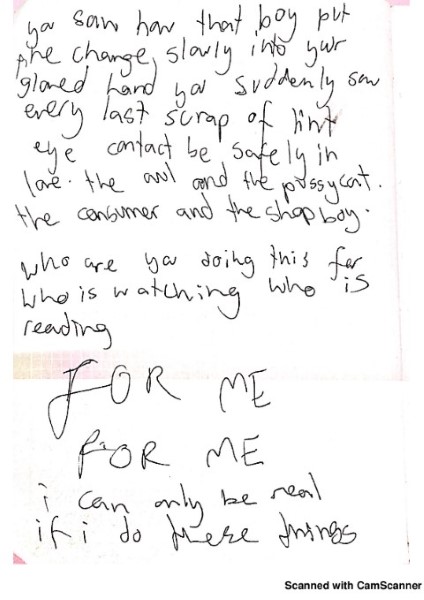 you saw how that boy put
the change, slowly into your
gloved hand you suddenly saw
every last scrap of lint
eye contact be safely in
love. the owl and the pussycat.
the consumer and the shop boy.
who are you doing this for
who is watching who is
reading
FOR ME
FOR ME
i can only be real
if i do these things
Scanned with CamScanner